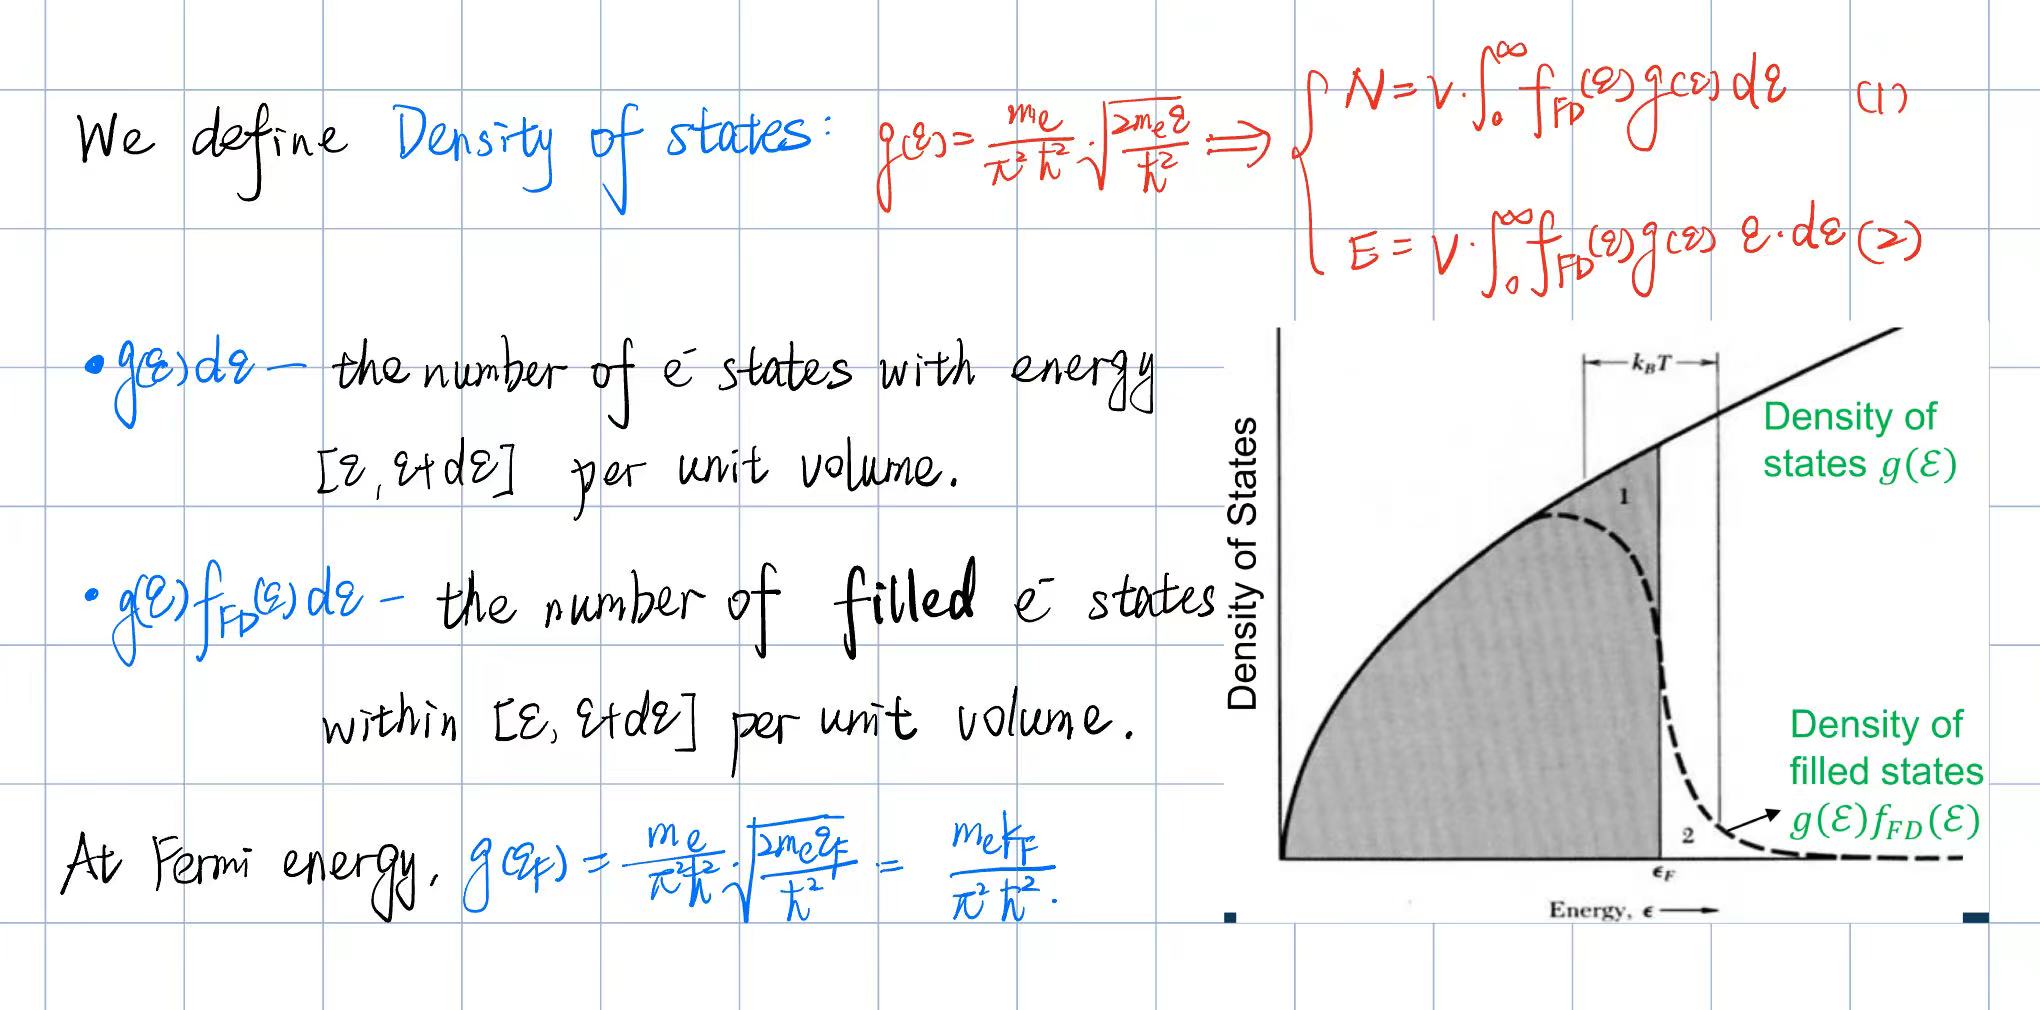 We define Density of states: g(ε) = mₑ/(π²ħ²) · √(2mₑε/ħ²) ⟹ { N = V · ∫₀^∞ f_FD(ε) g(ε) dε (1)
E = V · ∫₀^∞ f_FD(ε) g(ε) ε · dε (2)
• g(ε)dε — the number of e⁻ states with energy
[ε, ε+dε] per unit volume.
• g(ε) f_FD(ε) dε — the number of filled e⁻ states
within [ε, ε+dε] per unit volume.
At Fermi energy, g(ε_F) = mₑ/(π²ħ²) · √(2mₑε_F/ħ²) = mₑk_F/(π²ħ²).
Density of States
k_BT
Density of
states g(ℰ)
1
Density of
filled states
g(ℰ)f_FD(ℰ)
2
ϵ_F
Energy, ϵ ⟶